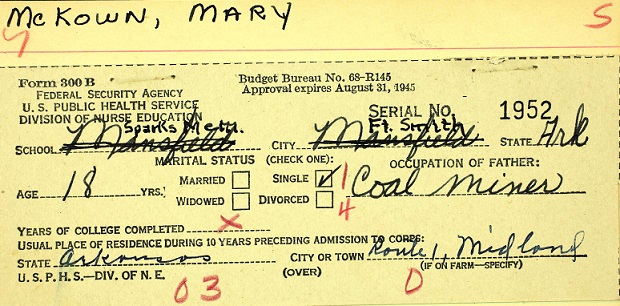 McKOWN, MARY S
Form 300 B Budget Bureau No. 68-R145
FEDERAL SECURITY AGENCY Approval expires August 31, 1945
U. S. PUBLIC HEALTH SERVICE
DIVISION OF NURSE EDUCATION SERIAL No. 1952
Sparks Mem. Ft. Smith
SCHOOL Mansfield CITY Mansfield STATE Ark
MARITAL STATUS (CHECK ONE): OCCUPATION OF FATHER:
AGE 18 YRS. MARRIED SINGLE ✓ 1 Coal Miner
WIDOWED DIVORCED 4
YEARS OF COLLEGE COMPLETED X
USUAL PLACE OF RESIDENCE DURING 10 YEARS PRECEDING ADMISSION TO CORPS:
STATE Arkansas CITY OR TOWN Route 1, Midland
U. S. P. H. S.—DIV. OF N. E. (OVER) (IF ON FARM—SPECIFY)
03 0